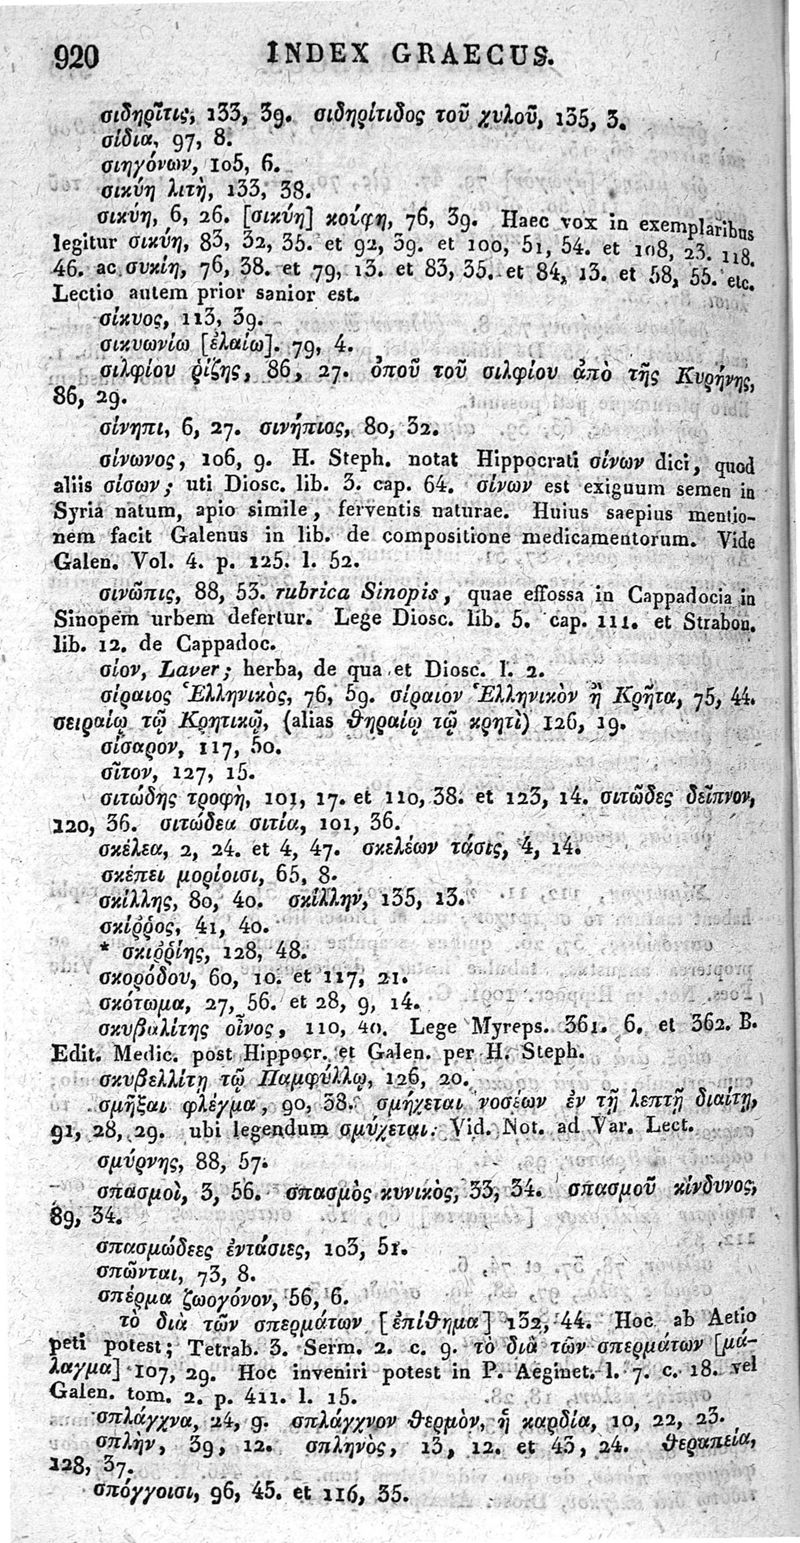 920 INDEX GRAECUS.
σιδηρῖτις, 133, 39. σιδηρίτιδος τοῦ χυλοῦ, 135, 3.
σίδια, 97, 8.
σιηγόνων, 105, 6.
σικύη λιτὴ, 133, 38.
σικύη, 6, 26. [σικύη] κούφη, 76, 39. Haec vox in exemplaribus
legitur σικύη, 83, 32, 35. et 92, 39. et 100, 51, 54. et 108, 23. 118.
46. ac συκίη, 76, 38. et 79, 13. et 83, 35. et 84, 13. et 58, 55. etc.
Lectio autem prior sanior est.
σίκυος, 113, 39.
σικυωνίω [ἐλαίω]. 79, 4.
σιλφίου ῥίζης, 86, 27. ὀποῦ τοῦ σιλφίου ἀπὸ τῆς Κυρήνης,
86, 29.
σίνηπι, 6, 27. σινήπιος, 80, 32.
σίνωνος, 106, 9. H. Steph. notat Hippocrati σίνων dici, quod
aliis σίσων; uti Diosc. lib. 3. cap. 64. σίνων est exiguum semen in
Syria natum, apio simile, ferventis naturae. Huius saepius mentio-
nem facit Galenus in lib. de compositione medicamentorum. Vide
Galen. Vol. 4. p. 125. l. 52.
σινῶπις, 88, 53. rubrica Sinopis, quae effossa in Cappadocia in
Sinopem urbem defertur. Lege Diosc. lib. 5. cap. 111. et Strabon.
lib. 12. de Cappadoc.
σίον, Laver; herba, de qua et Diosc. I. 2.
σίραιος Ἑλληνικὸς, 76, 59. σίραιον Ἑλληνικὸν ἢ Κρῆτα, 75, 44.
σειραίῳ τῷ Κρητικῷ, (alias θηραίῳ τῷ κρητὶ) 126, 19.
σίσαρον, 117, 50.
σῖτον, 127, 15.
σιτώδης τροφὴ, 101, 17. et 110, 38. et 123, 14. σιτῶδες δεῖπνον,
120, 36. σιτώδεα σιτία, 101, 36.
σκέλεα, 2, 24. et 4, 47. σκελέων τάσις, 4, 14.
σκέπει μορίοισι, 65, 8.
σκίλλης, 80, 40. σκίλλην, 135, 13.
σκίῤῥος, 41, 40.
* σκιῤῥίης, 128, 48.
σκορόδου, 60, 10. et 117, 21.
σκότωμα, 27, 56. et 28, 9, 14.
σκυβαλίτης οἶνος, 110, 40. Lege Myreps. 361. 6. et 362. B.
Edit. Medic. post Hippocr. et Galen. per H. Steph.
σκυβελλίτῃ τῷ Παμφύλλῳ, 126, 20.
σμῆξαι φλέγμα, 90, 38. σμήχεται νοσέων ἐν τῇ λεπτῇ διαίτῃ,
91, 28, 29. ubi legendum σμύχεται. Vid. Not. ad Var. Lect.
σμύρνης, 88, 57.
σπασμοὶ, 3, 56. σπασμὸς κυνικὸς, 33, 34. σπασμοῦ κίνδυνος,
89, 34.
σπασμώδεες ἐντάσιες, 103, 51.
σπῶνται, 73, 8.
σπέρμα ζωογόνον, 56, 6.
τὸ διὰ τῶν σπερμάτων [ἐπίθημα] 132, 44. Hoc ab Aetio
peti potest; Tetrab. 3. Serm. 2. c. 9. τὸ διὰ τῶν σπερμάτων [μά-
λαγμα] 107, 29. Hoc inveniri potest in P. Aeginet. l. 7. c. 18. vel
Galen. tom. 2. p. 411. l. 15.
σπλάγχνα, 24, 9. σπλάγχνον θερμὸν, ἡ καρδία, 10, 22, 23.
σπλὴν, 39, 12. σπληνὸς, 13, 12. et 43, 24. θεραπεία,
128, 37.
σπόγγοισι, 96, 45. et 116, 35.